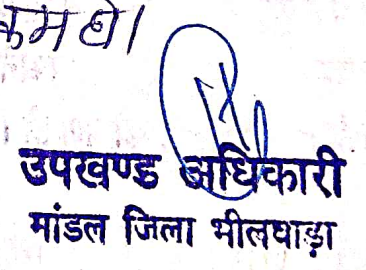 कम हो।
उपखण्ड अधिकारी
मांडल जिला भीलवाड़ा